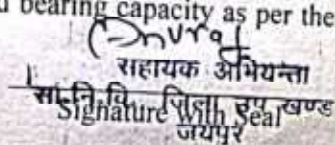 bearing capacity as per the
सहायक अभियन्ता
सा.नि.वि. जिला उप खण्ड
Signature With Seal
जयपुर